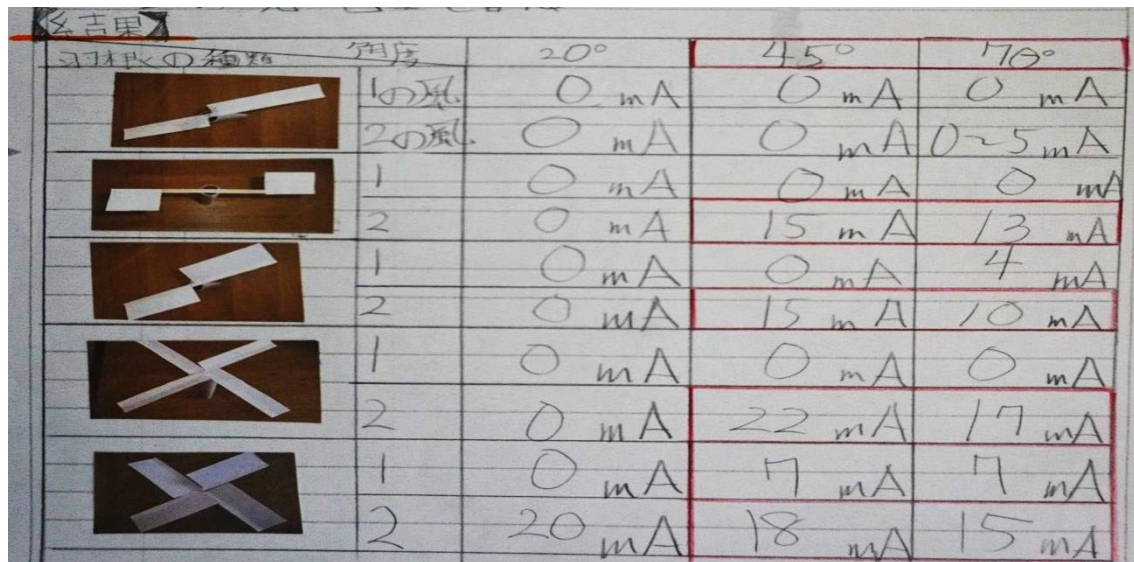 【結果】
羽根の種類 角度 20° 45° 70°
1の風 0 mA 0 mA 0 mA
2の風 0 mA 0 mA 0~5 mA
1 0 mA 0 mA 0 mA
2 0 mA 15 mA 13 mA
1 0 mA 0 mA 4 mA
2 0 mA 15 mA 10 mA
1 0 mA 0 mA 0 mA
2 0 mA 22 mA 17 mA
1 0 mA 7 mA 7 mA
2 20 mA 18 mA 15 mA